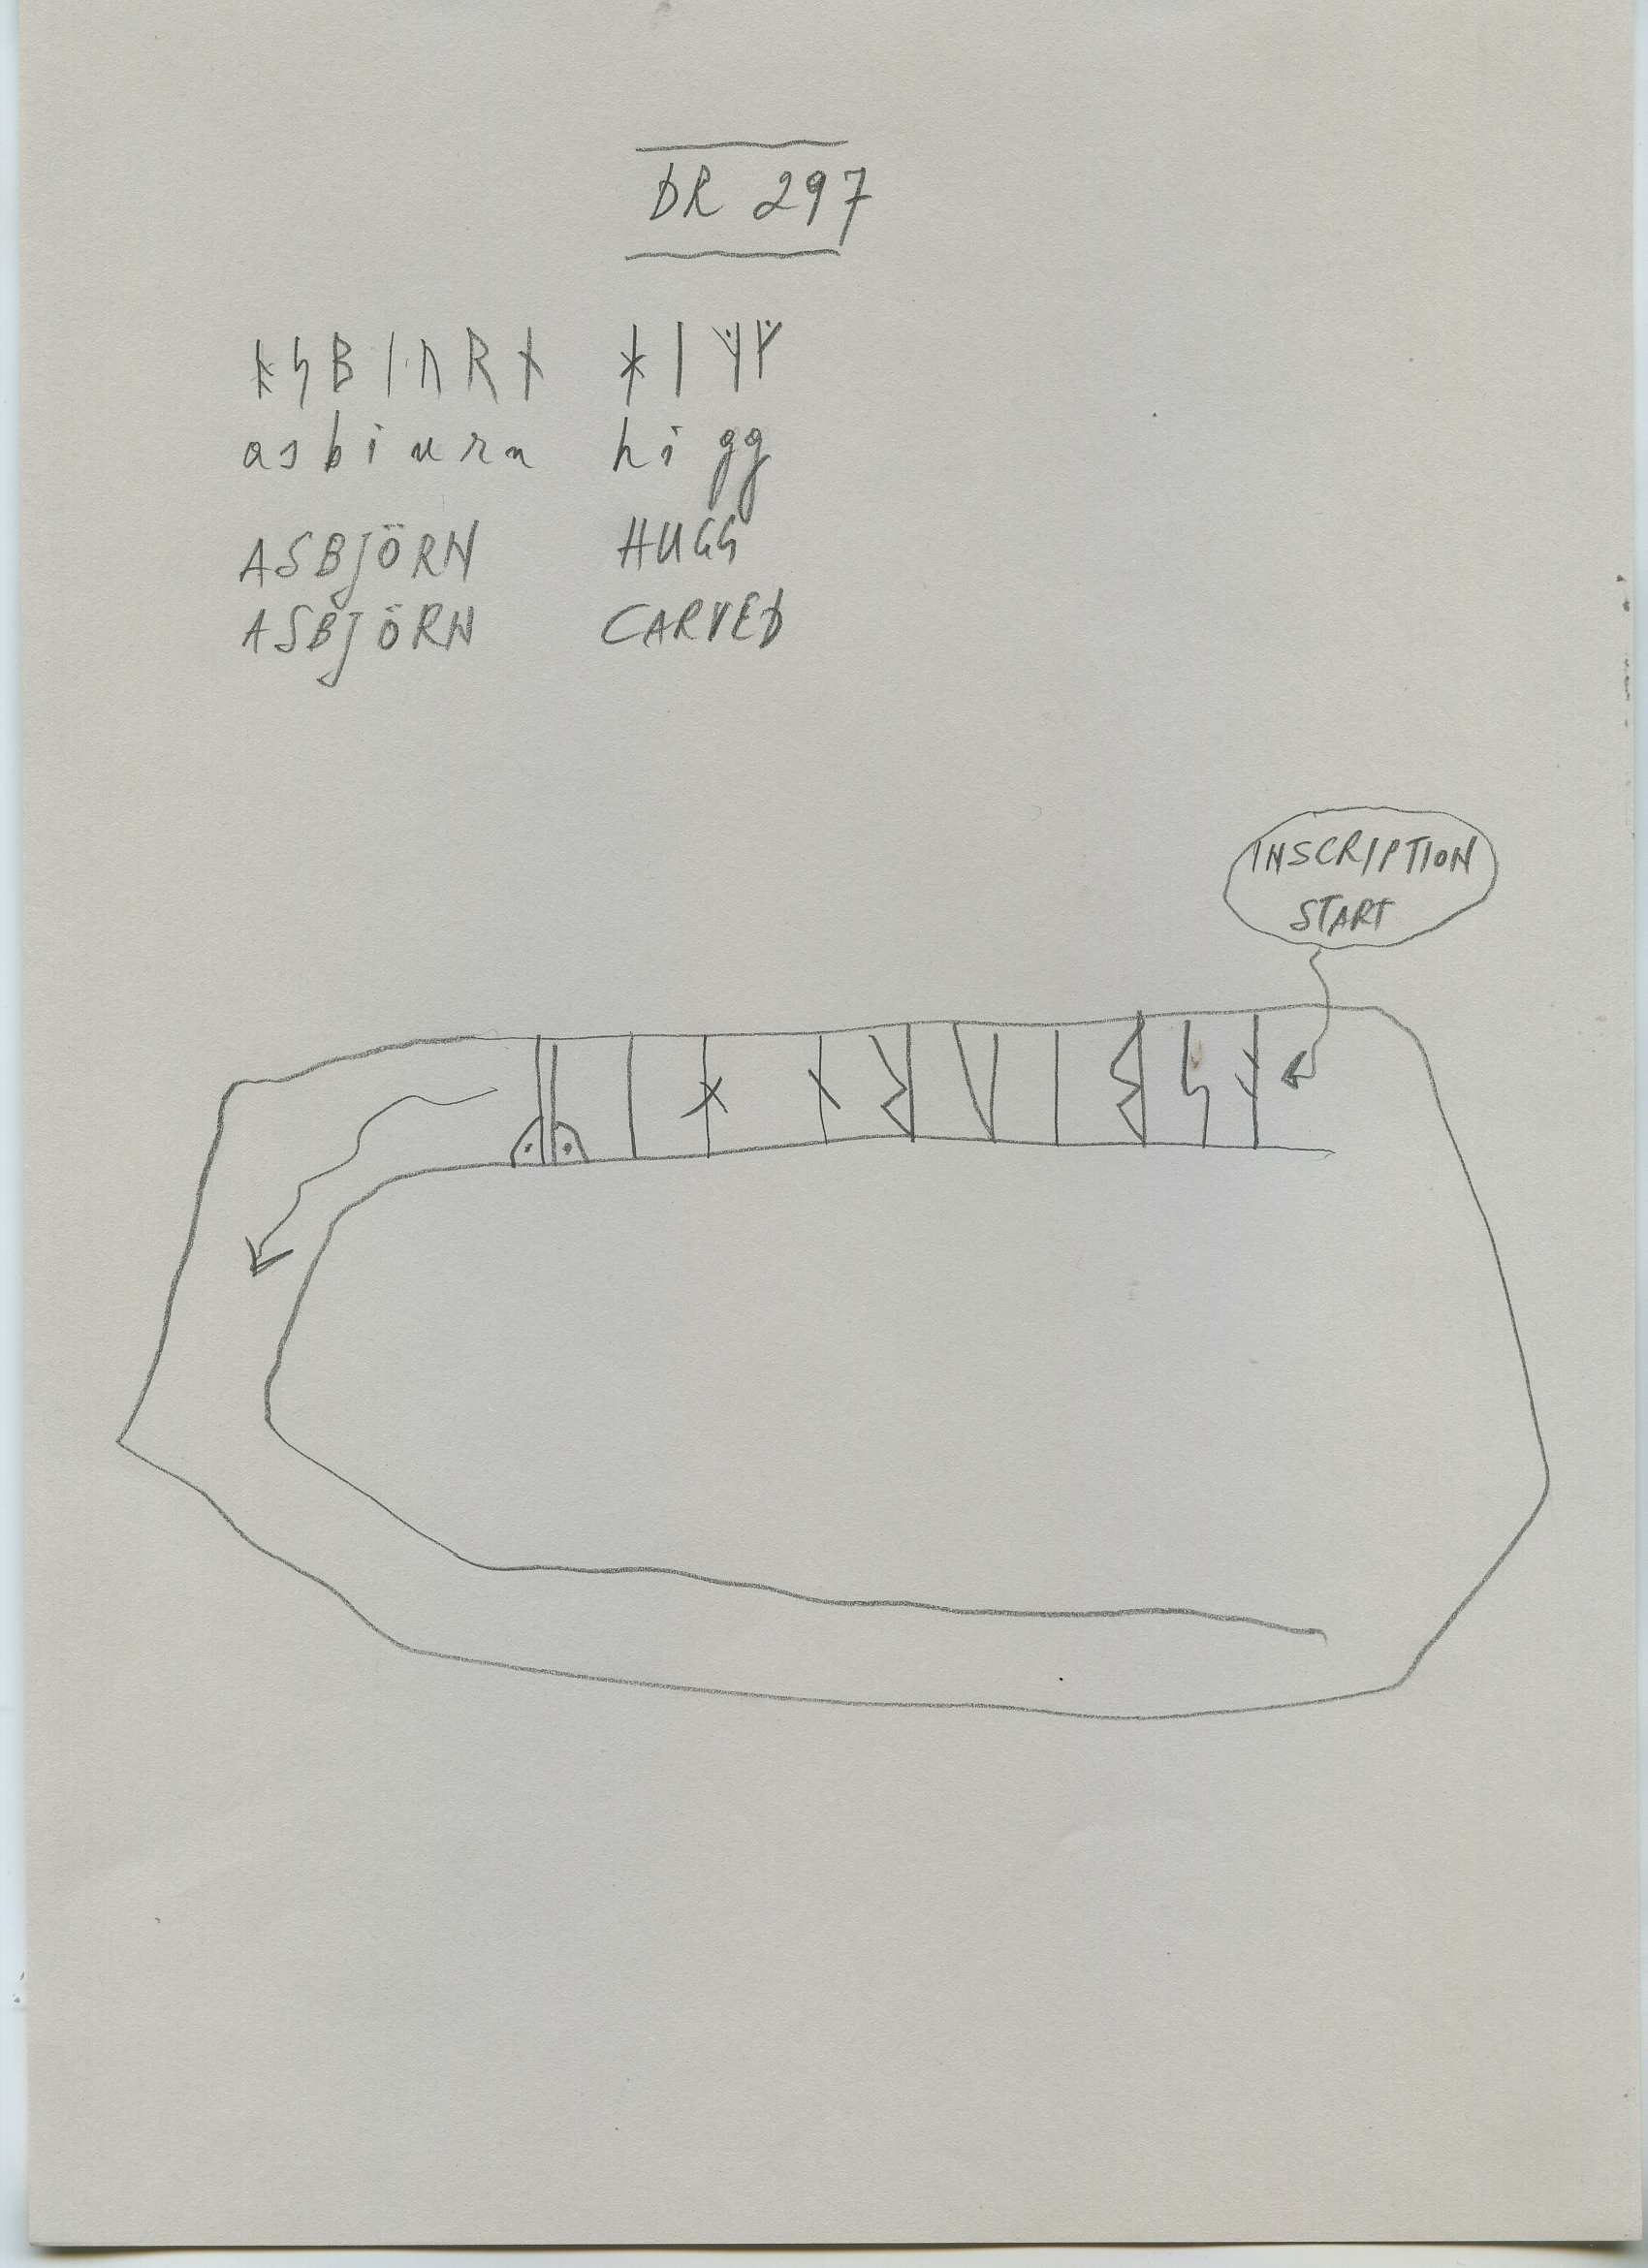 DR 297
ᚬᛋᛒᛁᚢᚱᚾ ᚼᛁᚵᚵ
asbiurn higg
ASBJÖRN HUGG
ASBJÖRN CARVED
INSCRIPTION
START
ᚬᛋᛒᛁᚢᚱᚾᚼᛁᚵᚵ